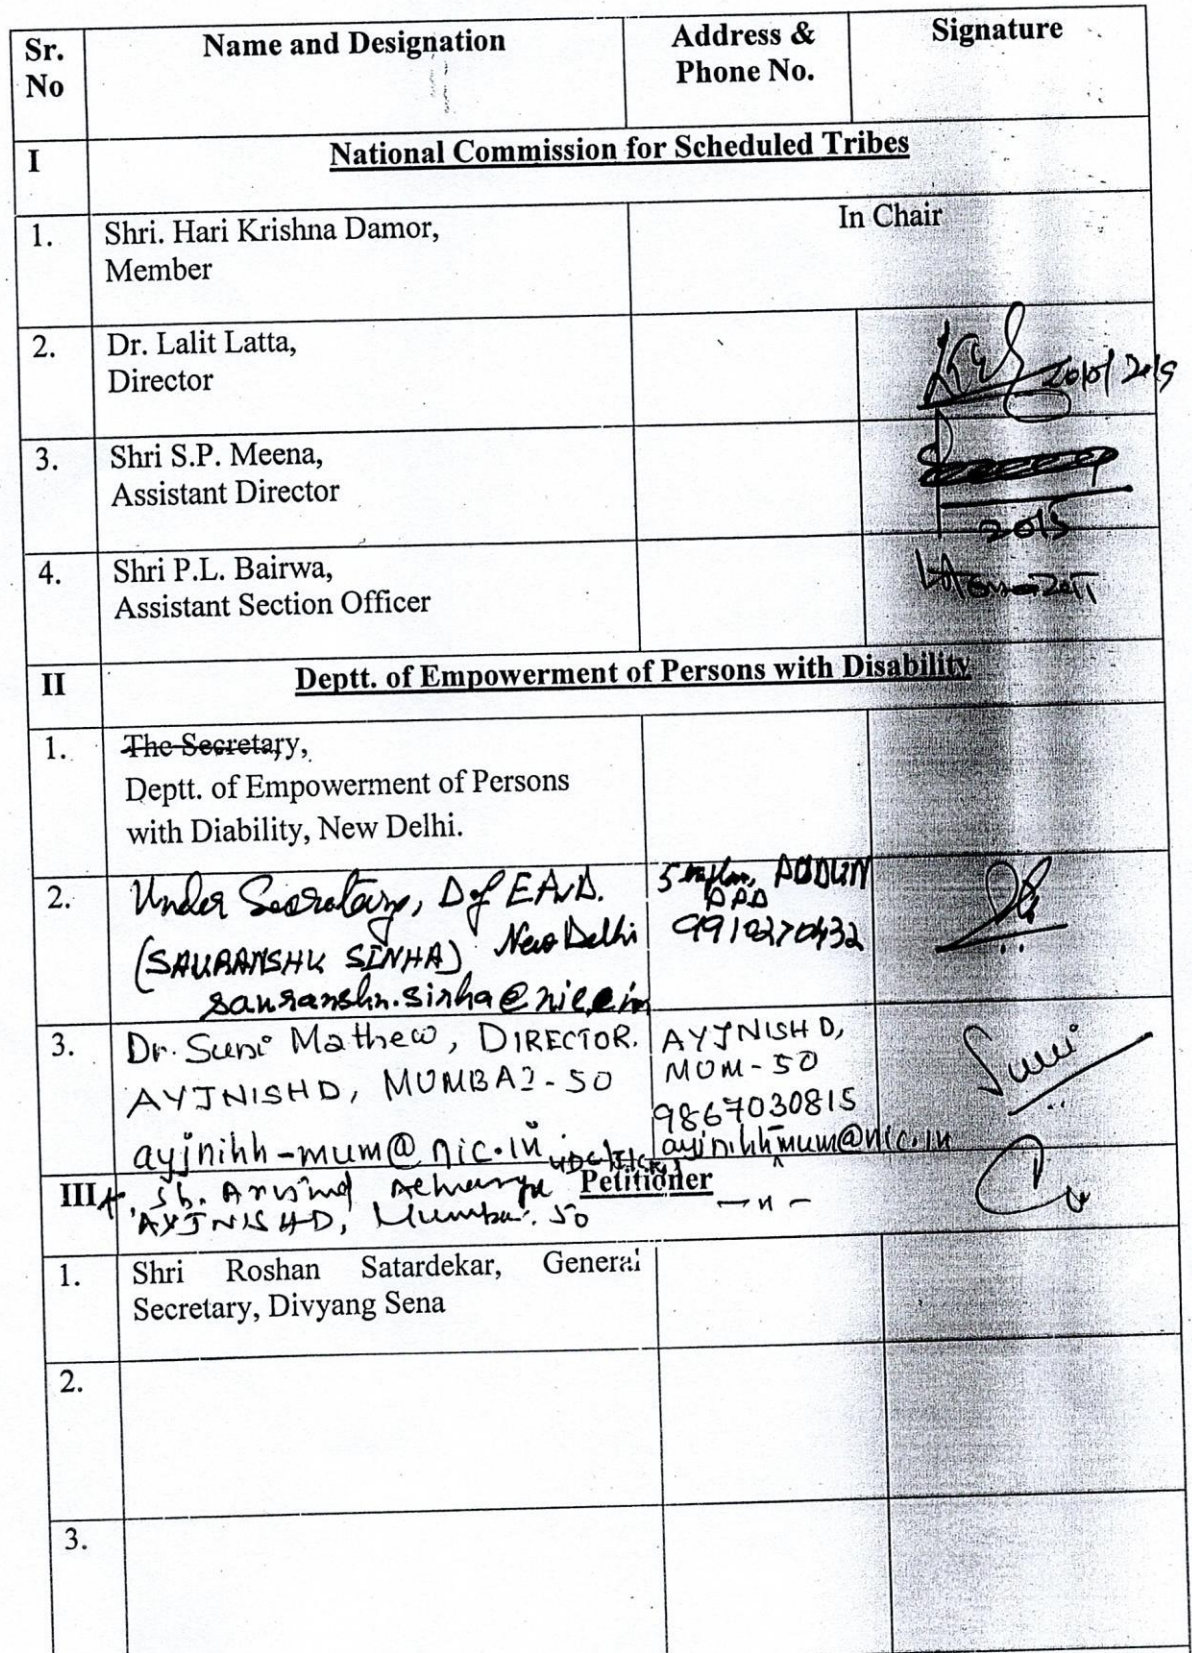 Sr. No
Name and Designation
Address & Phone No.
Signature
I
National Commission for Scheduled Tribes
1.
Shri. Hari Krishna Damor,
Member
In Chair
2.
Dr. Lalit Latta,
Director
3.
Shri S.P. Meena,
Assistant Director
4.
Shri P.L. Bairwa,
Assistant Section Officer
II
Deptt. of Empowerment of Persons with Disability
1.
The Secretary,
Deptt. of Empowerment of Persons
with Diability, New Delhi.
2.
Under Secretary,
New Delhi
(SAURANSHU SINHA)
9910270432
3.
Dr. Suni Mathew, DIRECTOR.
AYJNISHD, MUMBAI-50
ayjnihh-mum@nic.in
AYJNISHD,
MUM-50
9867030815
ayjnihh-mum@nic.in
Suni
III
Petitioner
4. Sh. Arvind
AYJNISHD, Mumbai. 50
— " —
1.
Shri Roshan Satardekar, General
Secretary, Divyang Sena
2.
3.